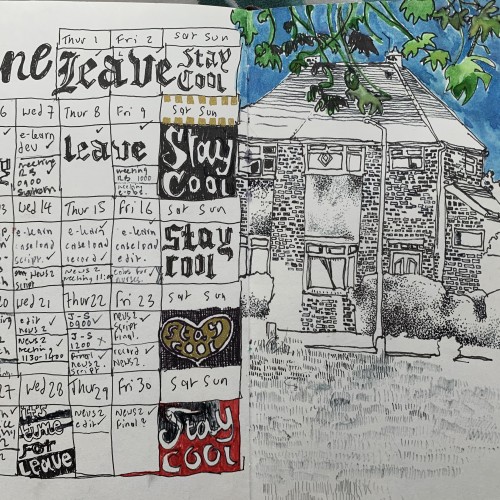 Thur 1 Fri 2 Sat Sun
ne Leave Stay
Cool
6 Wed 7 Thur 8 Fri 9 Sat Sun
e-learn
dev
meeting
0900
leave
meeting
1000
meeting
Stay
Cool
13 Wed 14 Thur 15 Fri 16 Sat Sun
e-learn
caseload
script.
News 2
meeting
e-learn
caseload
record
News 2
meeting
e-learn
caseload
edit.
nurses.
Stay
cool
20 Wed 21 Thur 22 Fri 23 Sat Sun
edit
news 2
News 2
meeting
1130-1400
J-S
0900
J-S
1200 x
Final
news 2
script
news 2
script
final.
record
news 2.
Stay
cool
27 Wed 28 Thur 29 Fri 30 Sat Sun
It's
time
For
Leave
News 2
edit.
News 2
final
Stay
cool